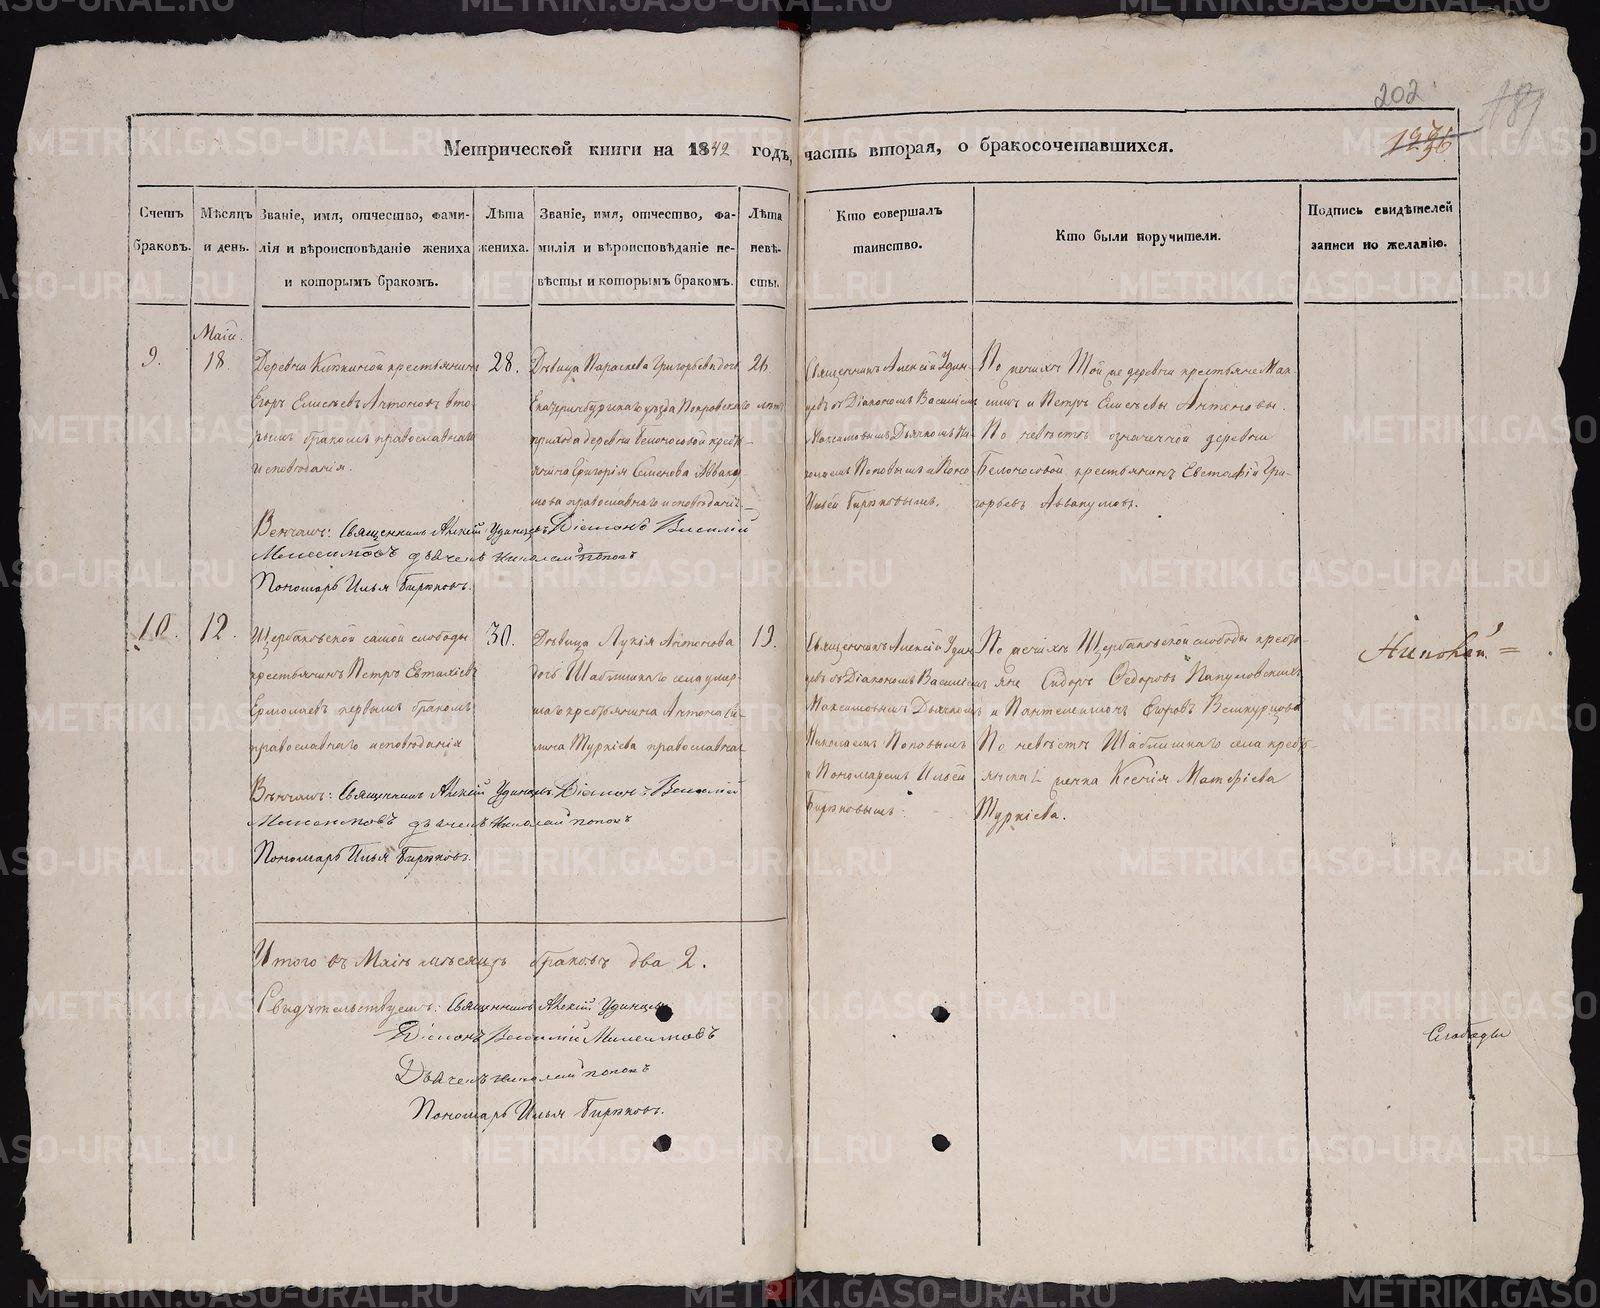 202
Метрической книги на 1842 годъ, часть вторая, о бракосочетавшихся.
Счетъ браковъ.
Мѣсяцъ и день.
Званіе, имя, отчество, фами-
лія и вѣроисповѣданіе жениха
и которымъ бракомъ.
Лѣта
жениха.
Званіе, имя, отчество, фа-
милія и вѣроисповѣданіе не-
вѣсты и которымъ бракомъ.
Лѣта
невѣ-
сты.
Кто совершалъ
таинство.
Кто были поручители.
Подпись свидѣтелей
записи по желанію.
Маій.
9.
18.
Деревни крестьянинъ
Егоръ Елисѣевъ Антоновъ вто-
рымъ бракомъ православнаго
исповѣданія.
28.
Дѣвица Параскева Григорьева дочь
Екатеринбургскаго уѣзда Покровскаго
прихода деревни Белоносовой кресть-
янина Григорія Семенова Авваку-
мова православнаго исповѣданія
26
лѣтъ
Священникъ Алексій Удин-
цевъ съ Діакономъ Василіемъ
Максимовымъ Дьячкомъ Ни-
колаемъ Поповымъ и Поно
Ильей Бирюковымъ.
По женихѣ Той же деревни крестьяне Мак-
симъ и Петръ Елисѣевы Антоновы.
По невѣстѣ означенной деревни
Белоносовой крестьянинъ Евстафій Гри-
горьевъ Аввакумовъ.
Венчалъ: Священникъ Алексій Удинцевъ Діаконъ Василій
Максимовъ дьячекъ Николай Поповъ
Пономарь Илья Бирюковъ.
10.
12.
Щербаковской самой слободы
крестьянинъ Петръ Евтихіевъ
Ермолаевъ первымъ бракомъ
православнаго исповѣданія
30.
Дѣвица Лукія Антонова
дочь Шаблишкаго села умер-
шаго крестьянина Антона
Туркіева православнаг
19.
Священникъ Алексій Удин
цевъ съ Діакономъ Василіемъ
Максимовымъ Дьячкомъ
Николаемъ Поповымъ
и Пономаремъ Ильей
Бирюковымъ.
По женихѣ Щербаковской слободы кресть-
яне Сидоръ Федоровъ
и Пантелеимонъ
По невѣстѣ Шаблишкаго села кресть-
янска женка Ксенія Матфіева
Туркіева.
Вѣнчалъ: Священникъ Алексій Удинцевъ Діаконъ Василій
Максимовъ дьячекъ Николай Поповъ
Пономарь Илья Бирюковъ.
Итого въ Маіѣ мѣсяцѣ браковъ два 2.
Свидѣтельствуемъ: Священникъ Алексій Удинцевъ
Діаконъ Василій Максимовъ
Дьячекъ Николай Поповъ
Пономарь Илья Бирюковъ.
METRIKI.GASO-URAL.RU